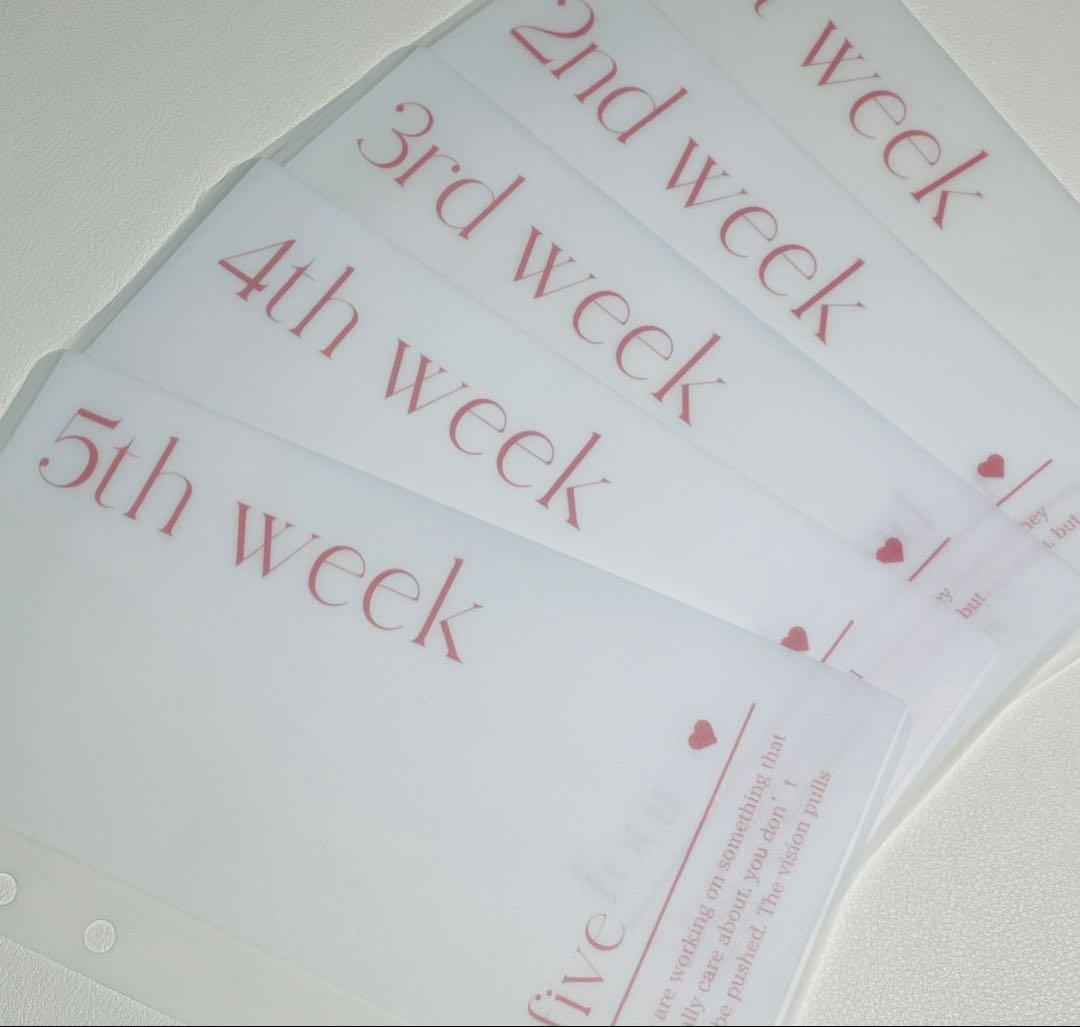 week
2nd week
3rd week
4th week
5th week
but
but
five
are working on something that
care about. you don't
be pushed. The vision pulls